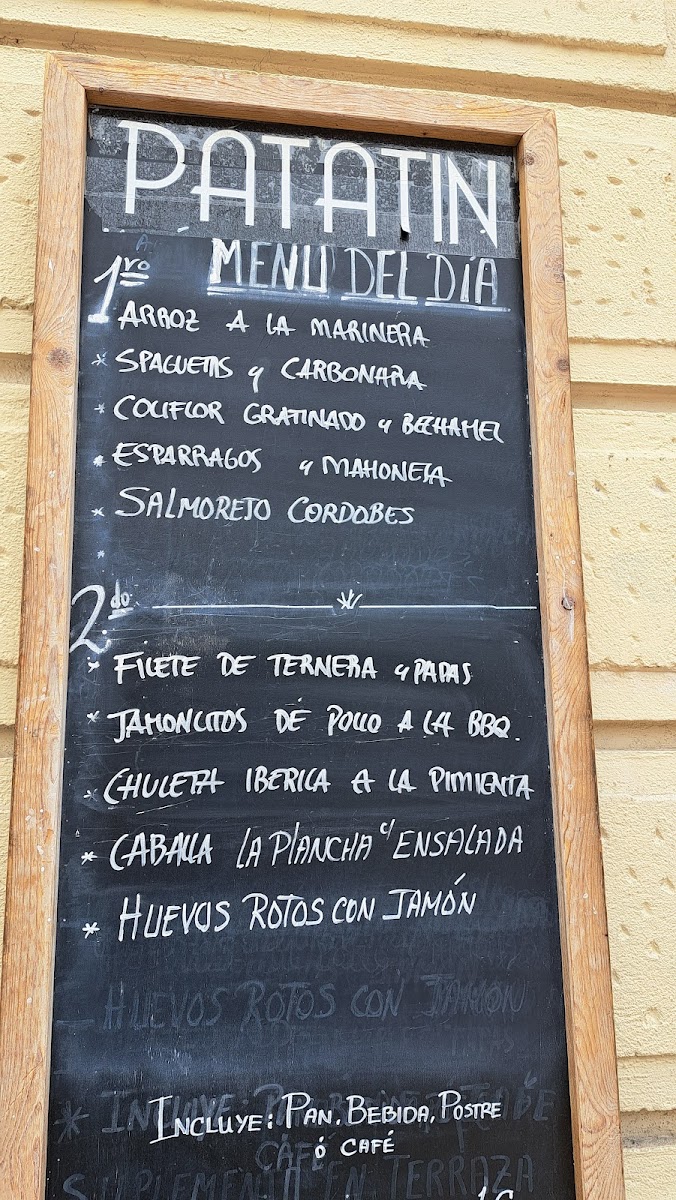 PATATIN
MENU DEL DÍA
1ro
ARROZ A LA MARINERA
* SPAGUETIS y CARBONARA
* COLIFLOR GRATINADO y BECHAMEL
* ESPARRAGOS y MAHONESA
* SALMOREJO CORDOBES
*
2do
* FILETE DE TERNERA y PAPAS
* JAMONCITOS DE POLLO A LA BBQ.
* CHULETA IBERICA A LA PIMIENTA
* CABALLA LA PLANCHA c/ ENSALADA
* HUEVOS ROTOS CON JAMÓN
HUEVOS ROTOS CON JAMÓN
INCLUYE: PAN, BEBIDA, POSTRE
Ó CAFÉ
CAFÉ
SUPLEMENTO EN TERRAZA